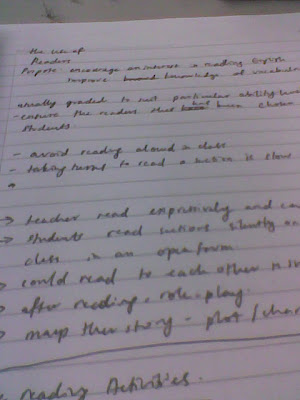 the use of
Readers
Purpose: encourage an interest in reading English
improve knowledge of vocabular
usually graded to suit particular ability leve
- ensure the readers that has been chosen
students.
- avoid reading aloud in class
- taking turns to read a section is slow
→ teacher read expressively and ca
→ students read sections silently an
class in an open forum
could read to each other in
after reading, role-play.
map the story - plot / char
reading Activities.